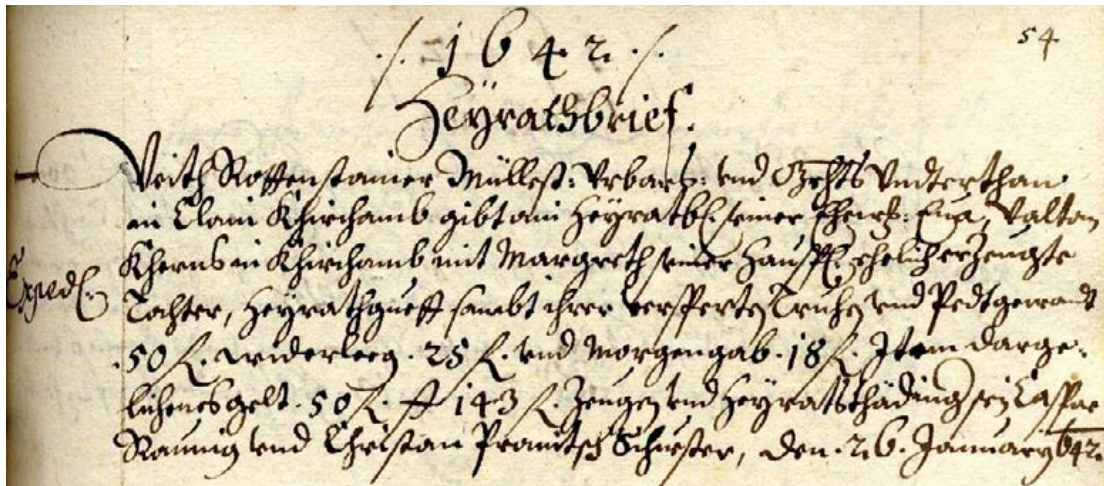 54
./. 1642 ./.
Heyrathbrief.
Veith Rottenstainer Müllest: Vrbarß: vnd Grhts Vndterthan
in Clain Khirchamb gibt ain Heyratbf. seiner Ehewß: Eua, Valtan
Kherns in Khirchamb mit Margreth seiner Hausf. ehelich erzeugte
Exped.
Tochter, Heyrathguett sambt ihrer versperten Truhen vnd Pedtgewandt
.50 f. widerleeg .25 f. vnd Morgengab .18 f. Item darge„
lichenes gelt .50 f. 143 f. Zeugen vnd Heyratsthäding sein Caspar
Raunig vnd Christan Pramitsch Schuester, den .26. January 642.